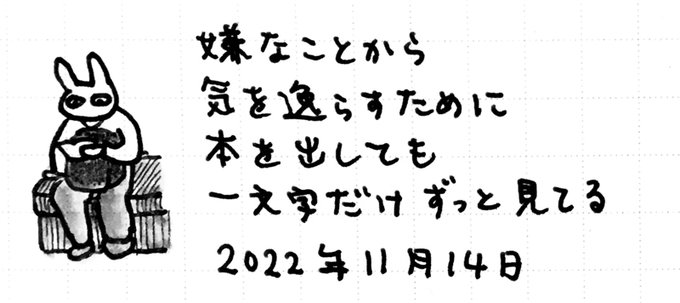 嫌なことから
気を逸らすために
本を出しても
一文字だけずっと見てる
2022年11月14日